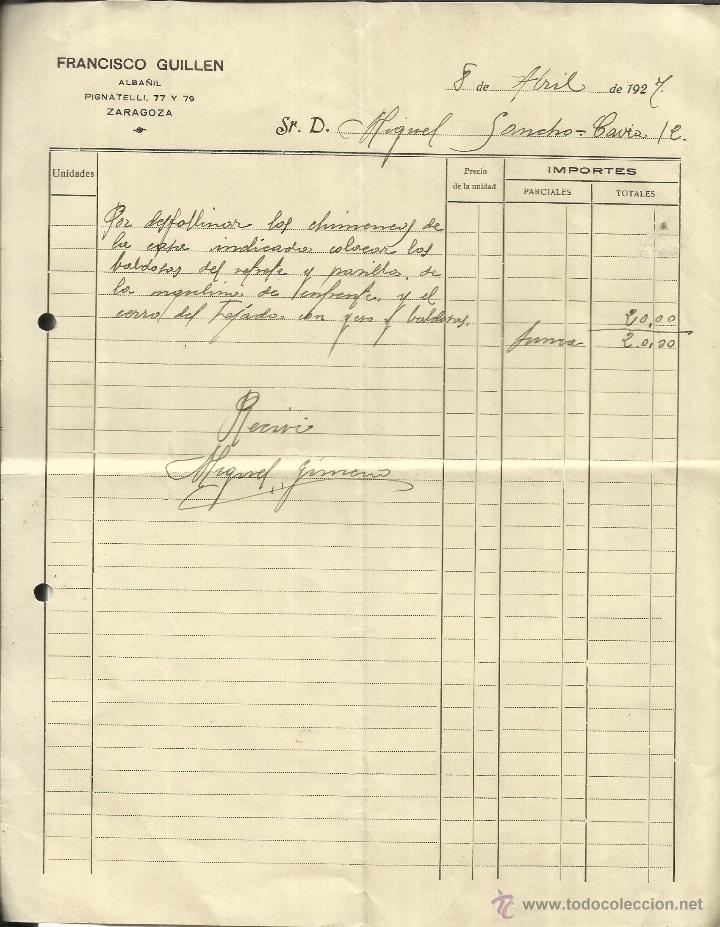 FRANCISCO GUILLEN
ALBAÑIL
PIGNATELLI, 77 Y 79
ZARAGOZA
8 de Abril de 1927
Sr. D. Miguel Sancho = Cavia
Unidades
Precio de la unidad
IMPORTES
PARCIALES
TOTALES
Por desollinar las chimeneas de
la casa indicada colocar las
baldosas del y pasillo de
la de enfrente y el
cerro del tejado con yeso y baldosas.
20,00
suma 20,00
Recivi
Miguel Gimeno
www.todocoleccion.net